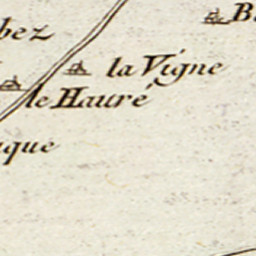 bez
la Vigne
le Hauré
que